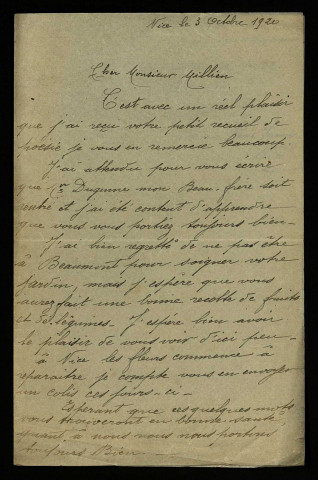 Nice le 3 Octobre 1920
Cher Monsieur Millien
C'est avec un réel plaisir
que j'ai reçu votre petit recueil de
poésie je vous en remercie beaucoup
J'ai attendu pour vous écrire
que Mr Dugenne mon Beau-frère soit
rentré et j'ai été content d'apprendre
que vous vous portiez toujours bien-
J'ai bien regretté de ne pas être
à Beaumont pour soigner votre
Jardin, mais j'espère que vous
aurez fait une bonne recolte de fruits
et de légumes- J'espère bien avoir
le plaisir de vous voir d'ici peu-
à Nice les fleurs commence à
reparaitre je compte vous en envoyer
un colis ces jours-ci-
Esperant que ces quelques mots
vous trouveront en bonne santé
quant à nous nous nous portons
toujours Bien